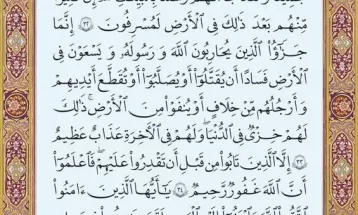 مِّنْهُم بَعْدَ ذَٰلِكَ فِي الْأَرْضِ لَمُسْرِفُونَ ۝٣٢ إِنَّمَا
جَزَٰٓؤُا۟ الَّذِينَ يُحَارِبُونَ اللَّهَ وَرَسُولَهُ وَيَسْعَوْنَ فِي
الْأَرْضِ فَسَادًا أَن يُقَتَّلُوٓا۟ أَوْ يُصَلَّبُوٓا۟ أَوْ تُقَطَّعَ أَيْدِيهِمْ
وَأَرْجُلُهُم مِّنْ خِلَافٍ أَوْ يُنفَوْا۟ مِنَ الْأَرْضِ ۚ ذَٰلِكَ
لَهُمْ خِزْيٌ فِي الدُّنْيَا ۖ وَلَهُمْ فِي الْآخِرَةِ عَذَابٌ عَظِيمٌ
۝٣٣ إِلَّا الَّذِينَ تَابُوا۟ مِن قَبْلِ أَن تَقْدِرُوا۟ عَلَيْهِمْ ۖ فَاعْلَمُوٓا۟
أَنَّ اللَّهَ غَفُورٌ رَّحِيمٌ ۝٣٤ يَٰٓأَيُّهَا الَّذِينَ ءَامَنُوا۟